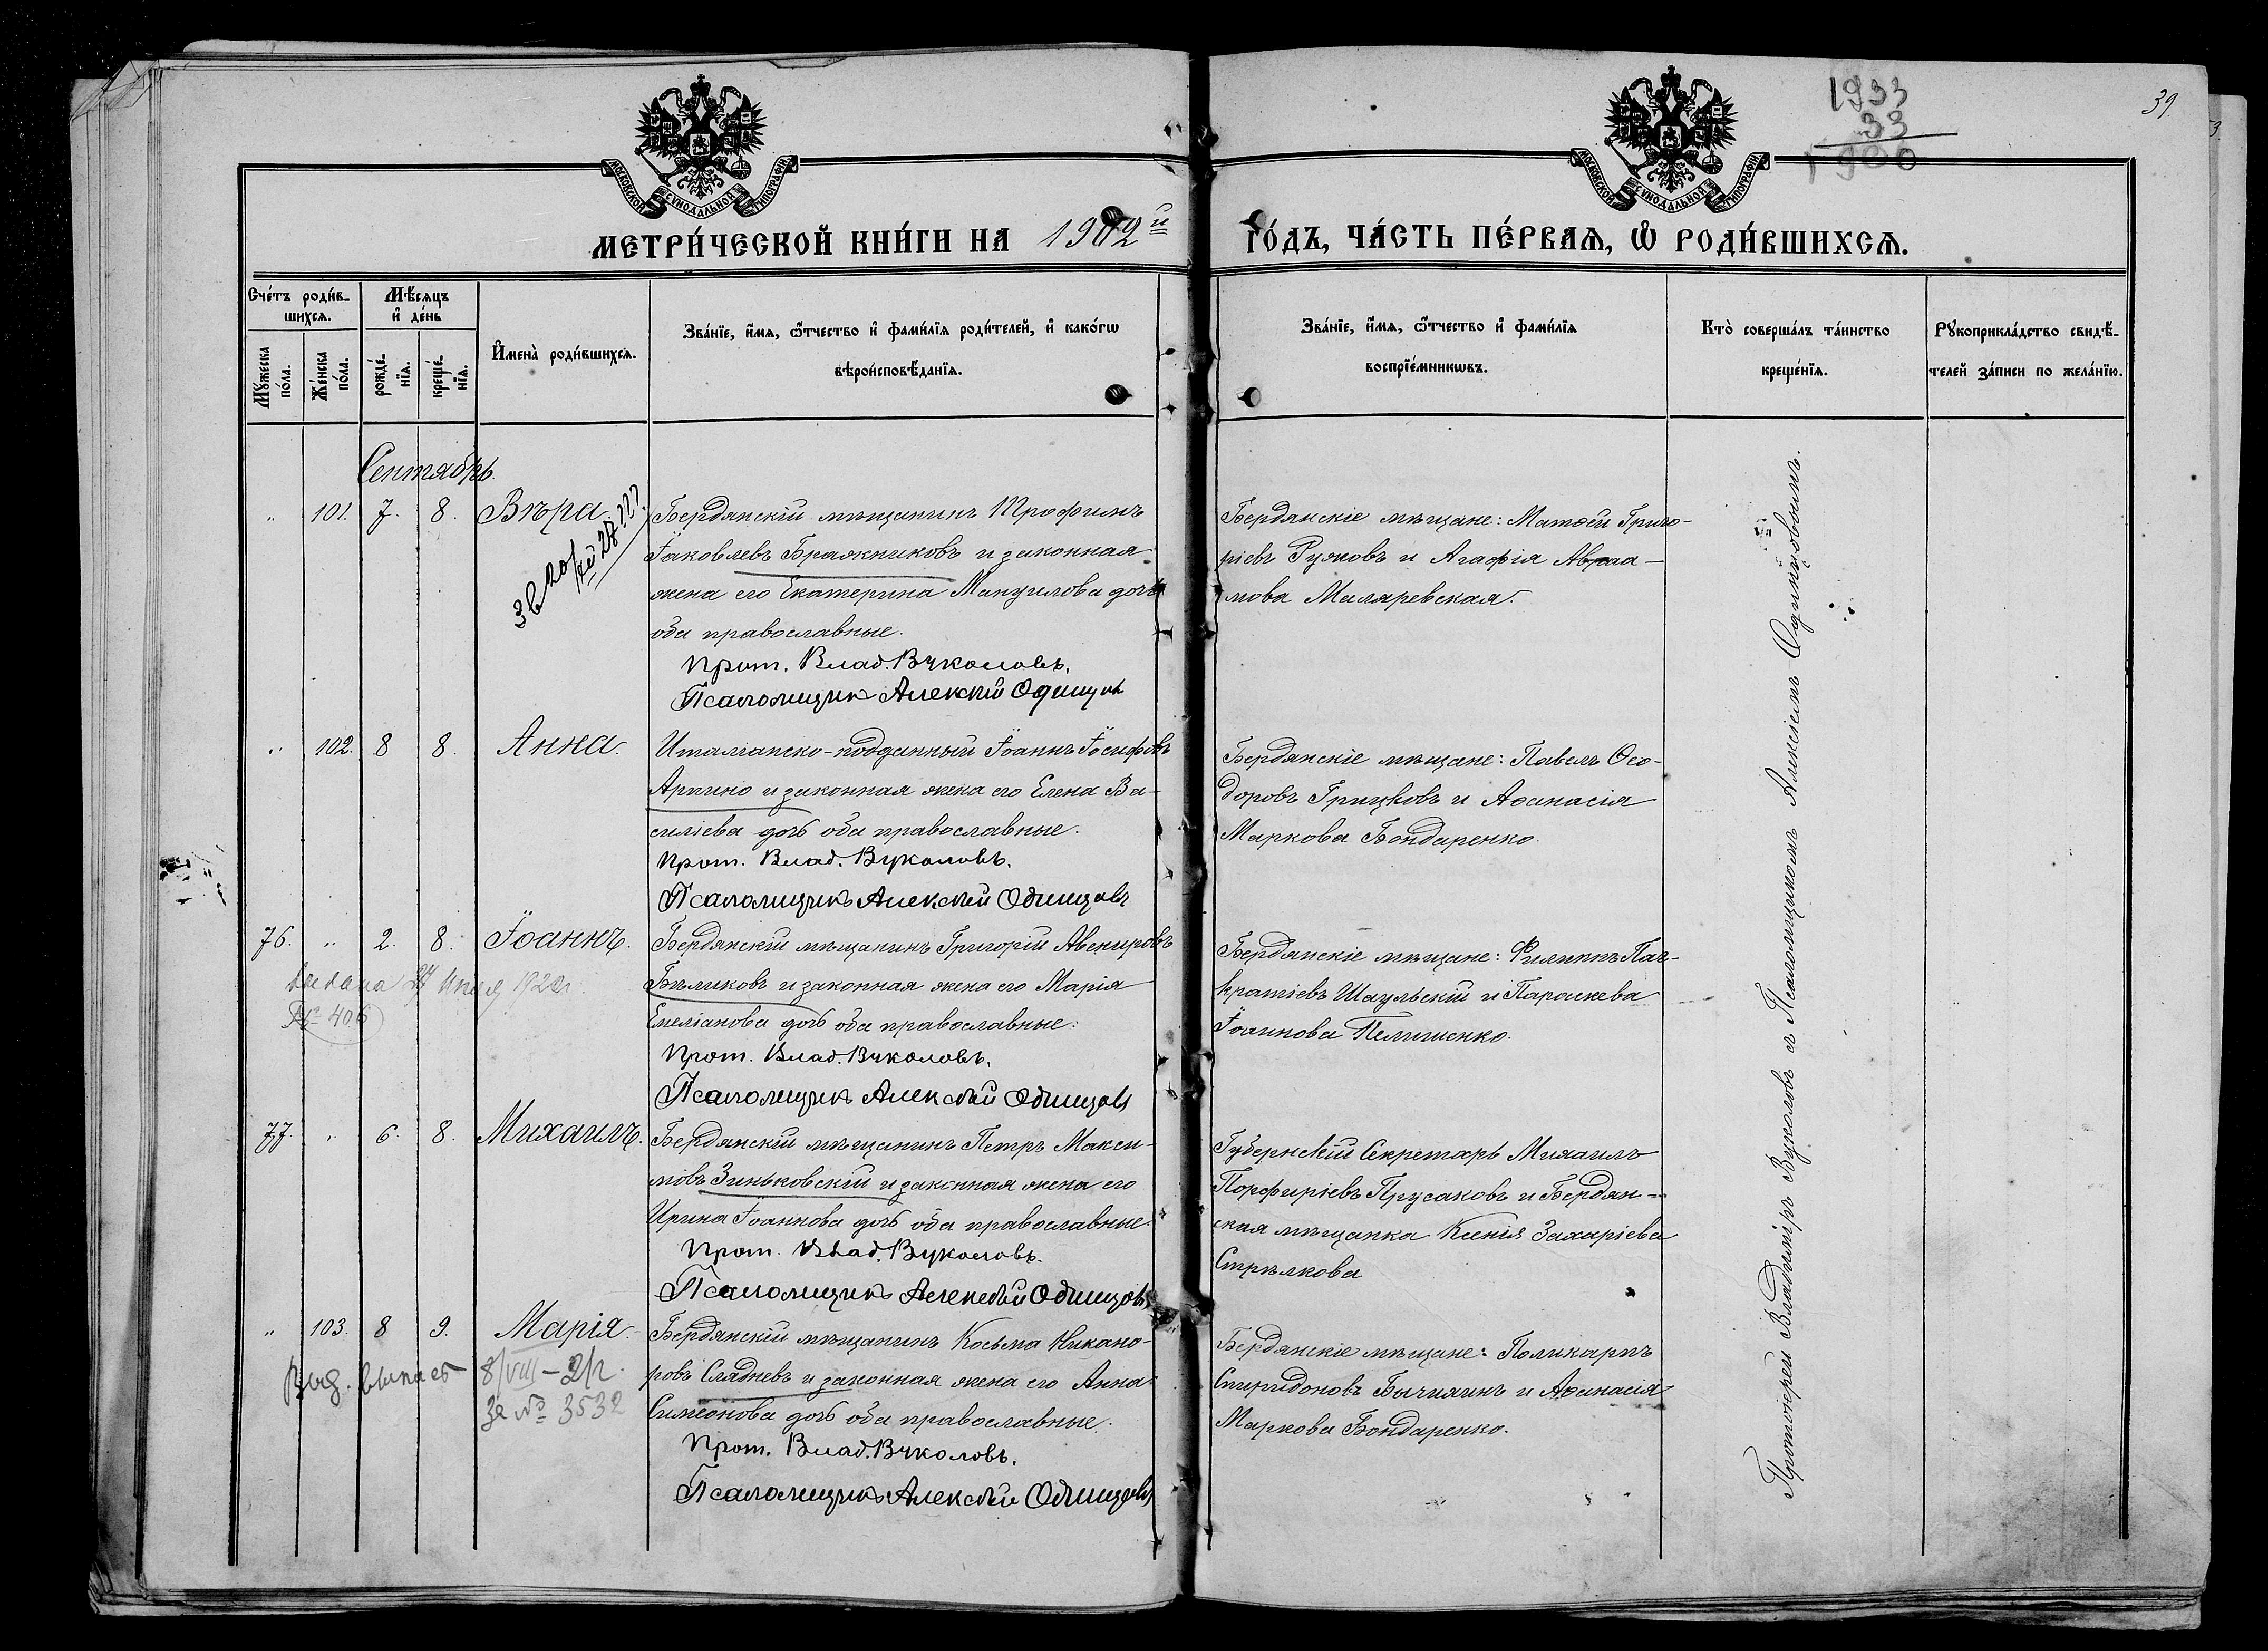 1933
33
1900
39
МОСКОВСКОЙ СѴНОДАЛЬНОЙ ТИПОГРАФІИ
МОСКОВСКОЙ СѴНОДАЛЬНОЙ ТИПОГРАФІИ
МЕТРИ́ЧЕСКОЙ КНИ́ГИ НА 1902й ГО́ДЪ, ЧА́СТЬ ПЕ́РВАЯ, Ѽ РОДИ́ВШИХСЯ.
Сче́тъ роди́в-
шихся.
Мѣ́сяцъ
и҆ де́нь
Мꙋ́жеска
по́ла.
Же́нска
по́ла.
рожде́-
нїя.
креще́-
нїя.
И҆мена̀ роди́вшихся.
Зва́нїе, и҆́мя, ѻ҆́тчество и҆ фами́лїя роди́телей, и҆ како́гѡ
вѣроисповѣ́данїя.
Зва́нїе, и҆́мя, ѻ҆́тчество и҆ фами́лїя
воспрїе́мникѡвъ.
Кто̀ соверша́лъ та́инство
креще́нїя.
Рꙋкоприкла́дство свидѣ́-
телей за́писи по жела́нїю.
Сентябрь.
" 101. 7. 8. Вѣра.
Бердянскій мѣщанинъ Трофимъ
Іаковлевъ Бражниковъ и законная
жена его Екатерина Мануилова дочь
оба православные.
Прот. Влад. Вуколовъ.
Псаломщикъ Алексѣй Одинцовъ
Бердянскіе мѣщане: Матѳей Григо-
ріевъ Рузковъ и Агафія Авраа-
мова Маляревская.
" 102. 8 8. Анна.
Итальянско-подданный Іоаннъ Іосифовъ
Арпино и законная жена его Елена Ва-
силіева дочь оба православные.
Прот. Влад. Вуколовъ.
Псаломщикъ Алексѣй Одинцовъ
Бердянскіе мѣщане: Павелъ Ѳео-
доровъ Грицковъ и Аѳанасія
Маркова Бондаренко.
76. " 2. 8. Іоаннъ.
№ 406
Бердянскій мѣщанинъ Григорій Авенировъ
Бѣликовъ и законная жена его Марія
Емеліанова дочь оба православные.
Прот. Влад. Вуколовъ.
Псаломщикъ Алексѣй Одинцовъ
Бердянскіе мѣщане: Филиппъ Пан-
кратіевъ Шаульскій и Параскева
Іоаннова
77. " 6. 8. Михаилъ.
Бердянскій мѣщанинъ Петръ Макси-
мовъ Зиньковскій и законная жена его
Ирина Іоаннова дочь оба православные.
Прот. Влад. Вуколовъ.
Псаломщикъ Алексѣй Одинцовъ
Губернскій Секретарь Михаилъ
Порфиріевъ Прусаковъ и Бердян-
ская мѣщанка Ксенія Захаріева
Стрѣлкова
" 103. 8 9. Марія.
Выд. выпись 8/VIII – 21 г.
За № 3532
Бердянскій мѣщанинъ Косьма Никано-
ровъ Слядневъ и законная жена его Анна
Симеонова дочь оба православные.
Прот. Влад. Вуколовъ.
Псаломщикъ Алексѣй Одинцовъ
Бердянскіе мѣщане: Поликарпъ
Спиридоновъ и Аѳанасія
Маркова Бондаренко.
Протоіерей Владиміръ Вуколовъ съ Псаломщикомъ Алексіемъ Одинцовымъ.